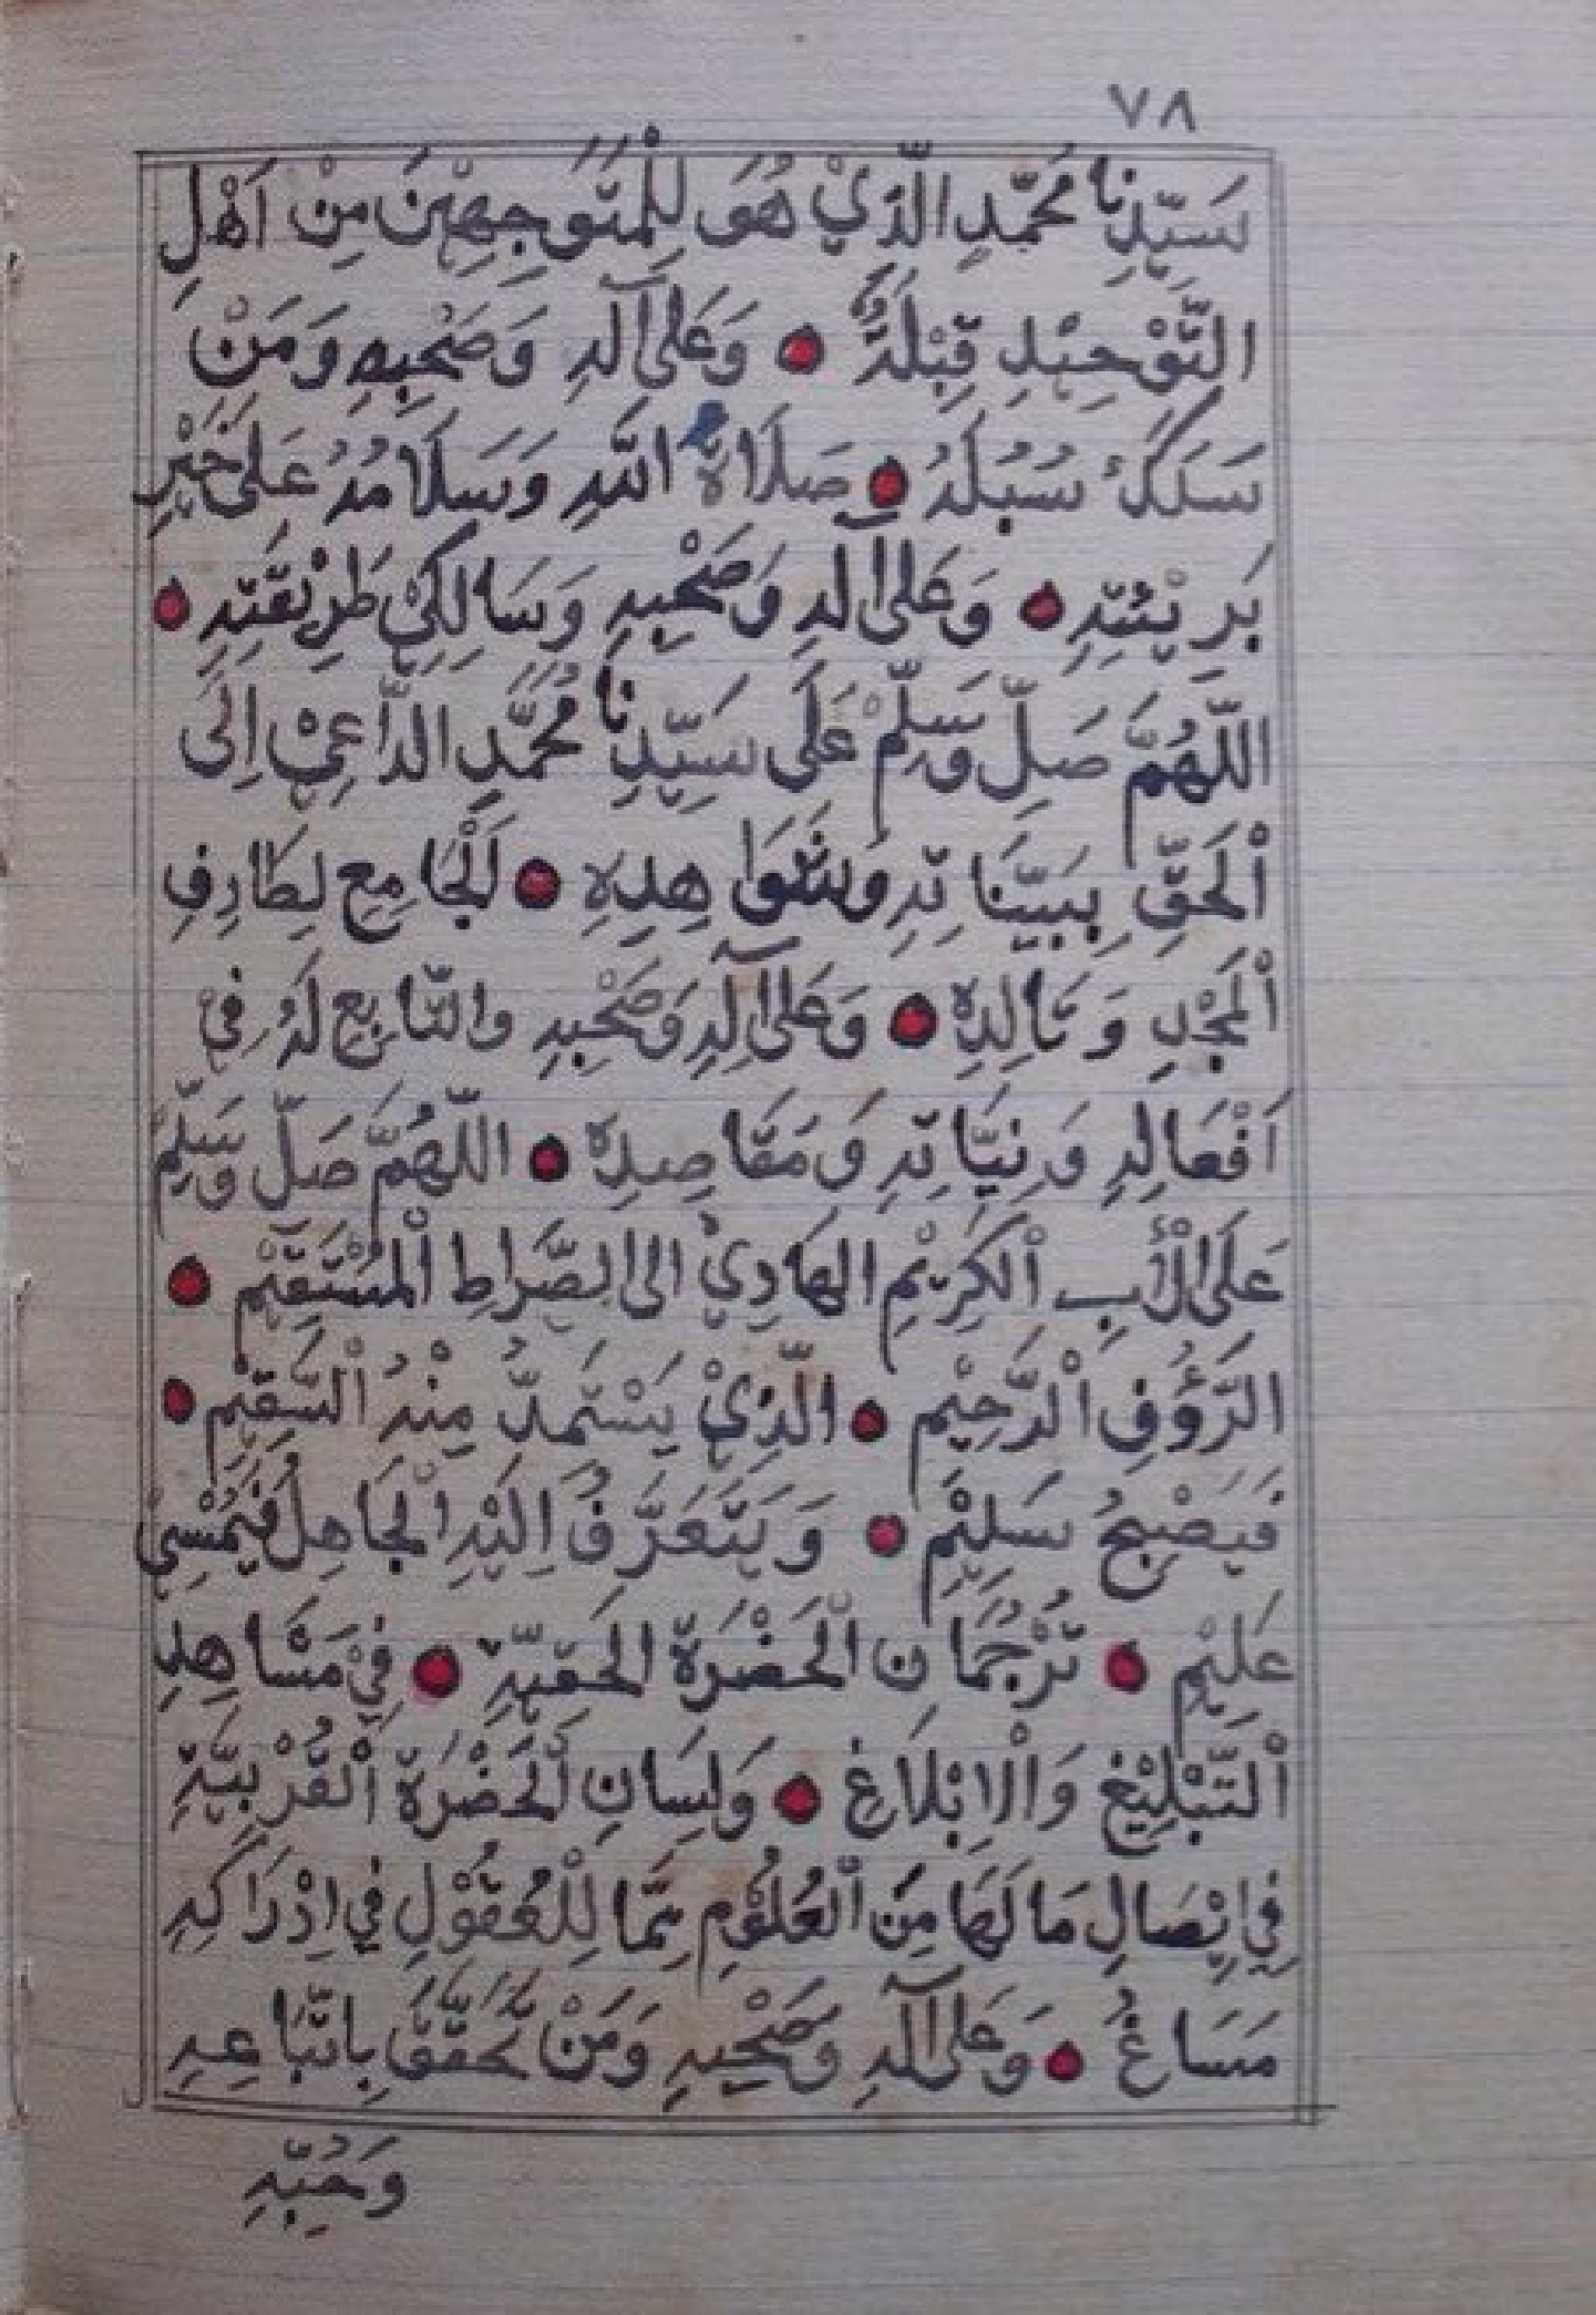 ٧٨
سَيِّدِنَا مُحَمَّدِ الَّذِيْ هُوَ لِلْمُتَوَجِهِيْنَ مِنْ اَهْلِ
التَّوْحِيْدِ قِبْلَةٌ • وَعَلى آلِهِ وَصَحْبِهِ وَمَنْ
سَلَكَ سُبُلَهُ • صَلَاةُ اللهِ وَسَلَامُهُ عَلى خَيْرِ
بَرِيْئَتِهِ • وَعَلى آلِهِ وَصَحْبِهِ وَسَالِكِيْ طَرِيْقَتِهِ •
اللّهُمَّ صَلِّ وَسَلِّمْ عَلَى سَيِّدِنَا مُحَمَّدِ الدَّاعِيْ اِلَى
اْلحَقِّ بِبَيِّنَاتِهِ وَشَوَاهِدِهِ • اَلْجَامِعِ لِطَارِفِ
اْلمَجْدِ وَتَالِدِهِ • وَعَلى آلِهِ وَصَحْبِهِ والتَّابِعِ لَهُ فِيْ
اَفْعَالِهِ وَنِيَّاتِهِ وَمَقَاصِدِهِ • اللّهُمَّ صَلِّ وَسَلِّمْ
عَلَى اْلأَبِ اْلكَرِيْمِ الهَادِيْ الى الصِّرَاطِ اْلمُسْتَقِيْم •
الرَّؤُفِ الْرَّحِيْم • الَّذِيْ يَسْتَمِدُّ مِنْهُ اْلسَّقِيْم •
فَيَصْبِحُ سَلِيْم • وَيَتَعَرَّفُ اِلَيْهِ اْلجَاهِلُ فَيُمْسِىْ
عَلِيْم • تَرْجُمَان اْلحَضْرَة الحَقِيّةِ • فِيْ مَشَاهِدِ
اْلتَّبْلِيْغِ وَاْلاِبْلَاغِ • وَلِسَانِ اْلحَضْرَة اْلقُرْبِيَّةِ
فِي اِيْصَالِ مَا لَهَا مِنَ اْلعُلُوْمِ مِمَّا لِلْعُقُوْلِ فِي اِدْرَاكِهِ
مَسَاغُ • وَعَلى آلِهِ وَصَحْبِهِ وَمَنْ تَحَقَّقَ بِاتِّبَاعِهِ
وَحُبِّهِ